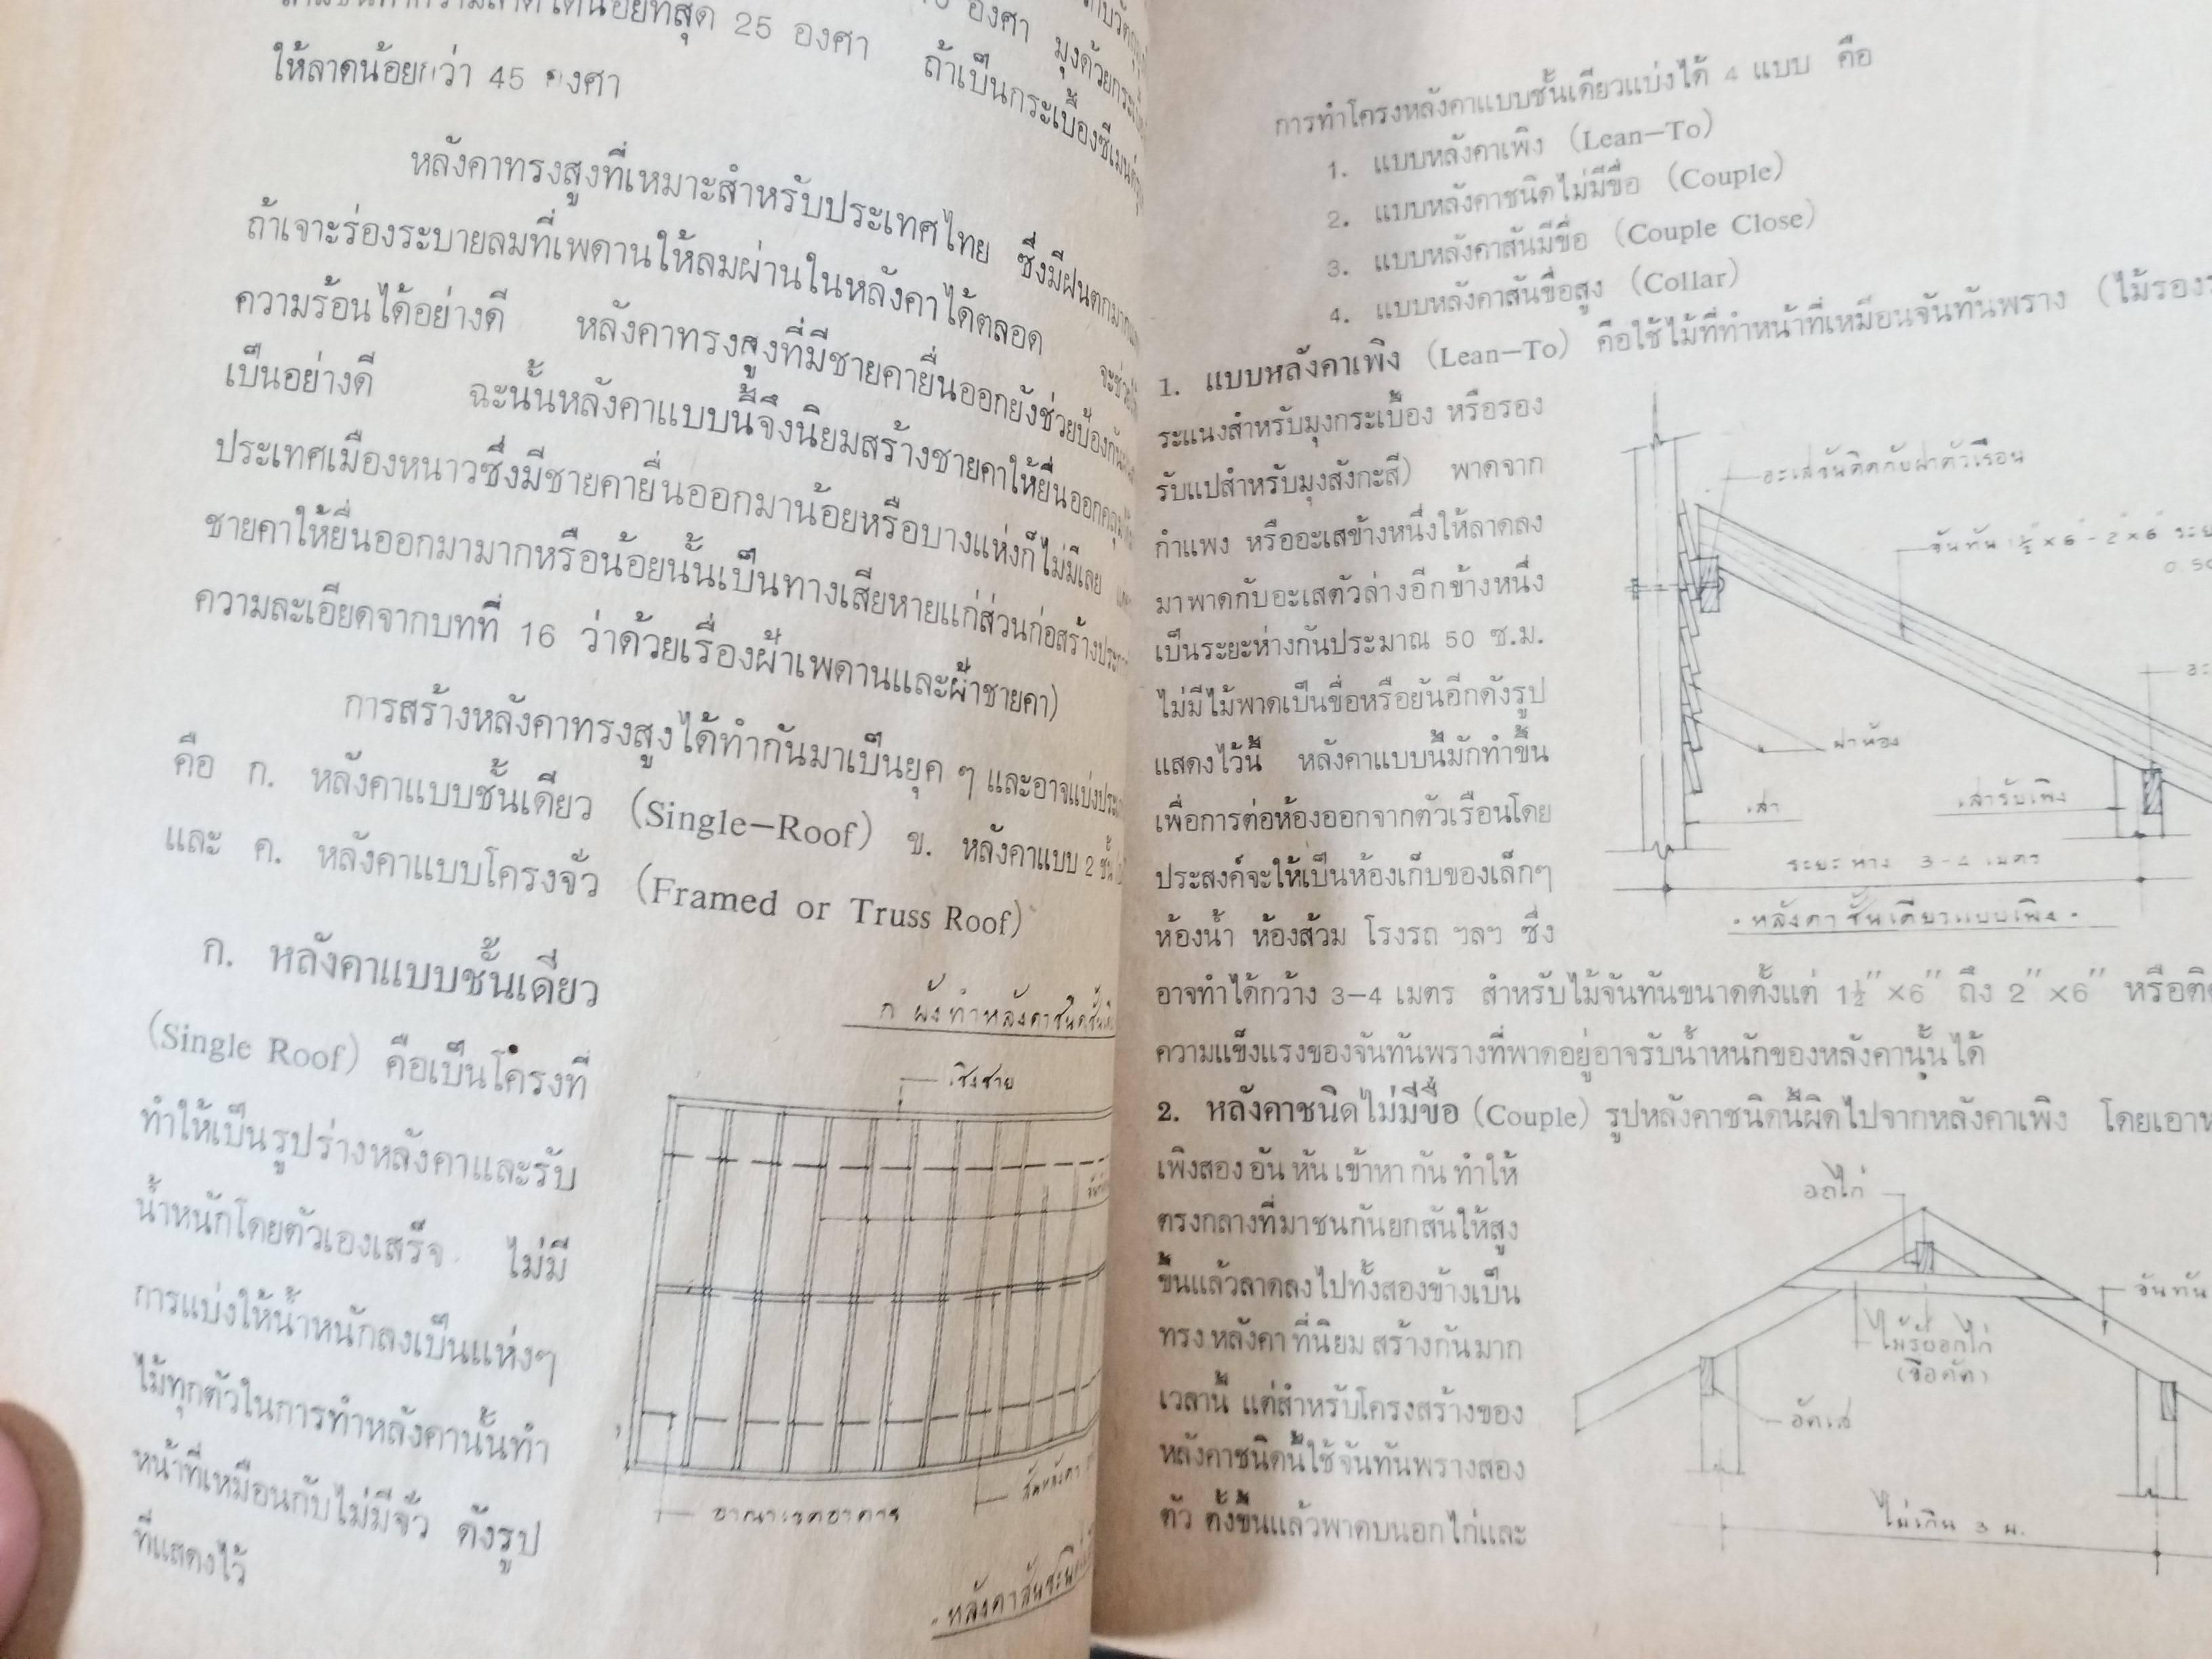 ให้ลาดน้อยกว่า 45 องศา
25 องศา ถ้าเป็นกระเบื้องซีเมนต์
องศา มุงด้วย
หลังคาทรงสูงที่เหมาะสำหรับประเทศไทย ซึ่งมีฝนตกมาก
ถ้าเจาะร่องระบายลมที่เพดานให้ลมผ่านในหลังคาได้ตลอด จะช่วย
ความร้อนได้อย่างดี หลังคาทรงสูงที่มีชายคายื่นออกยังช่วยป้องกัน
เป็นอย่างดี ฉะนั้นหลังคาแบบนี้จึงนิยมสร้างชายคาให้ยื่นออก
ประเทศเมืองหนาวซึ่งมีชายคายื่นออกมาน้อยหรือบางแห่งก็ไม่มีเลย
ชายคาให้ยื่นออกมามากหรือน้อยนั้นเป็นทางเสียหายแก่ส่วนก่อสร้าง
ความละเอียดจากบทที่ 16 ว่าด้วยเรื่องฝ้าเพดานและฝ้าชายคา)
การสร้างหลังคาทรงสูงได้ทำกันมาเป็นยุค ๆ และอาจแบ่ง
คือ ก. หลังคาแบบชั้นเดียว (Single-Roof) ข. หลังคาแบบ 2 ชั้น
และ ค. หลังคาแบบโครงจั่ว (Framed or Truss Roof)
ก. หลังคาแบบชั้นเดียว
(Single Roof) คือเป็นโครงที่
ทำให้เป็นรูปร่างหลังคาและรับ
น้ำหนักโดยตัวเองเสร็จ ไม่มี
การแบ่งให้น้ำหนักลงเป็นแห่งๆ
ไม้ทุกตัวในการทำหลังคานั้นทำ
หน้าที่เหมือนกับไม่มีจั่ว ดังรูป
ที่แสดงไว้
ก ผังทำหลังคาชนิดชั้น
เชิงชาย
อาณาเขตอาคาร
สันหลังคา
- หลังคาสัน
การทำโครงหลังคาแบบชั้นเดียวแบ่งได้ 4 แบบ คือ
1. แบบหลังคาเพิง (Lean-To)
2. แบบหลังคาชนิดไม่มีขื่อ (Couple)
3. แบบหลังคาสันมีขื่อ (Couple Close)
4. แบบหลังคาสันขื่อสูง (Collar)
1. แบบหลังคาเพิง (Lean-To) คือใช้ไม้ที่ทำหน้าที่เหมือนจันทันพราง (ไม้รอง
ระแนงสำหรับมุงกระเบื้อง หรือรอง
รับแปสำหรับมุงสังกะสี) พาดจาก
กำแพง หรืออะเสข้างหนึ่งให้ลาดลง
มาพาดกับอะเสตัวล่างอีกข้างหนึ่ง
เป็นระยะห่างกันประมาณ 50 ซ.ม.
ไม่มีไม้พาดเป็นขื่อหรือยันอีกดังรูป
แสดงไว้นี้ หลังคาแบบนี้มักทำขึ้น
เพื่อการต่อห้องออกจากตัวเรือนโดย
ประสงค์จะให้เป็นห้องเก็บของเล็กๆ
ห้องน้ำ ห้องส้วม โรงรถ ฯลฯ ซึ่ง
อะเสรันติดกับฝาตัวเรือน
จันทัน 1½"×6"-2"×6"
ฝาห้อง
เสา
เสารับเพิง
ระยะห่าง 3-4 เมตร
- หลังคาชั้นเดียวแบบเพิง -
อาจทำได้กว้าง 3-4 เมตร สำหรับไม้จันทันขนาดตั้งแต่ 1½"×6" ถึง 2"×6" หรือ
ความแข็งแรงของจันทันพรางที่พาดอยู่อาจรับน้ำหนักของหลังคานั้นได้
2. หลังคาชนิดไม่มีขื่อ (Couple) รูปหลังคาชนิดนี้ผิดไปจากหลังคาเพิง โดยเอา
เพิงสองอันหันเข้าหากันทำให้
ตรงกลางที่มาชนกันยกสันให้สูง
ขึ้นแล้วลาดลงไปทั้งสองข้างเป็น
ทรงหลังคาที่นิยมสร้างกันมาก
เวลานี้ แต่สำหรับโครงสร้างของ
หลังคาชนิดนี้ใช้จันทันพรางสอง
ตัว ตั้งขึ้นแล้วพาดบนอกไก่และ
อกไก่
จันทัน
ไม้รับอกไก่
(ขื่อคัด)
อัดเส
ไม่เกิน 3 ม.